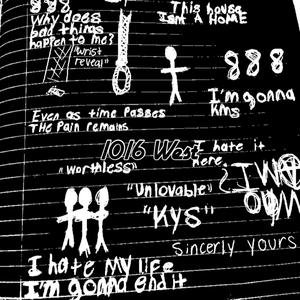 888
Why does
bad things
happen to me?
"wrist
reveal"
This house
Isnt A HOME
888
I'm gonna
kms
Even as time Passes
THe Pain remains
1016 West
I hate it
here
"worthless"
"Unlovable"
"KYS"
I WANT
OUT
Sincerly yours
I hate MY life
I'm gonna end it